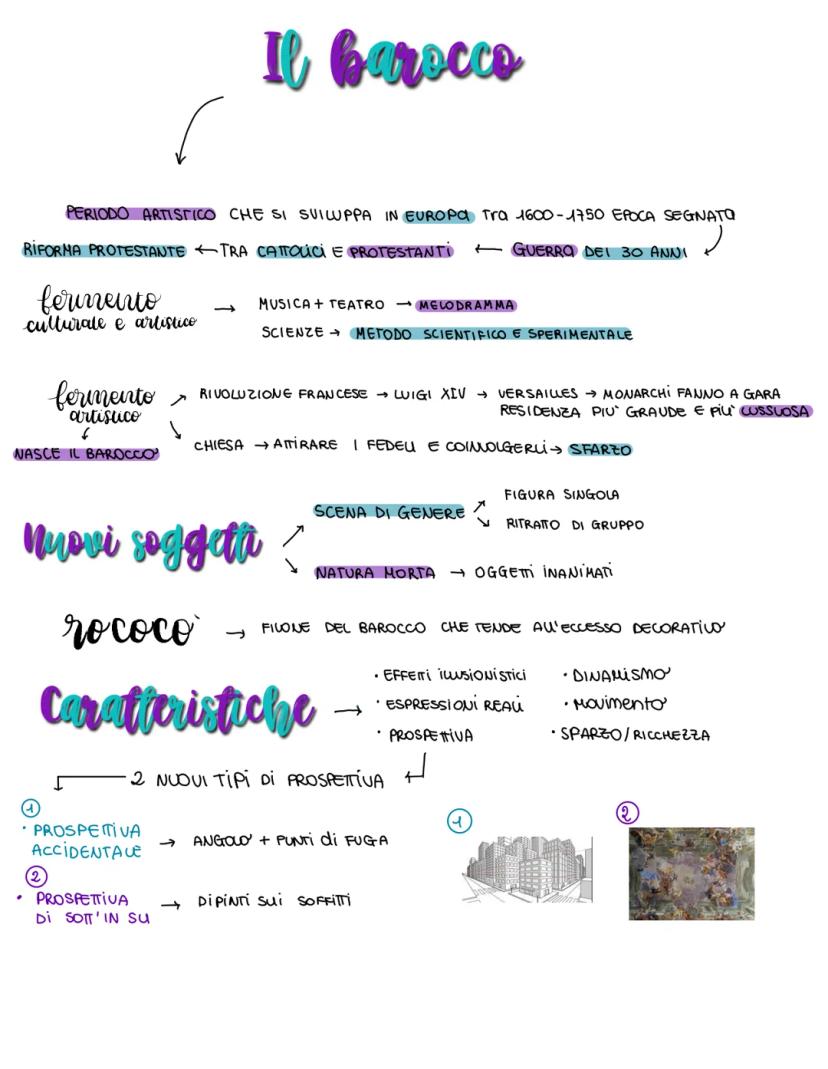 Il barocco
PERIODO ARTISTICO CHE SI SVILUPPA IN EUROPA Tra 1600-1750 EPOCA SEGNATA
RIFORMA PROTESTANTE ← TRA CATTOLICI E PROTESTANTI ← GUERRA DEI 30 ANNI
fermento
culturale e artistico
→ MUSICA + TEATRO → MELODRAMMA
SCIENZE → METODO SCIENTIFICO E SPERIMENTALE
fermento
artistico
NASCE IL BAROCCO
RIVOLUZIONE FRANCESE → LUIGI XIV → VERSAILLES → MONARCHI FANNO A GARA
RESIDENZA PIU' GRANDE E PIU' LUSSUOSA
CHIESA → ATTIRARE I FEDELI E COINVOLGERLI → SFARZO
Nuovi soggetti
SCENA DI GENERE
FIGURA SINGOLA
RITRATTO DI GRUPPO
NATURA MORTA → OGGETTI INANIMATI
rococo` → FILONE DEL BAROCCO CHE TENDE All'ECCESSO DECORATIVO
Caratteristiche →
· EFFETTI illUSIONISTICI
· ESPRESSIONI REALI
· PROSPETTIVA
· DINAMISMO
· MOVIMENTO
· SPARZO/RICCHEZZA
2 NUOVI TIPI DI PROSPETTIVA
1
· PROSPETTIVA
ACCIDENTALE
→ ANGOLO + PUNTI di FUGA
2
· PROSPETTIVA
Di SOTT'IN SU
→ DIPINTI SUI SOFFITTI
1
2